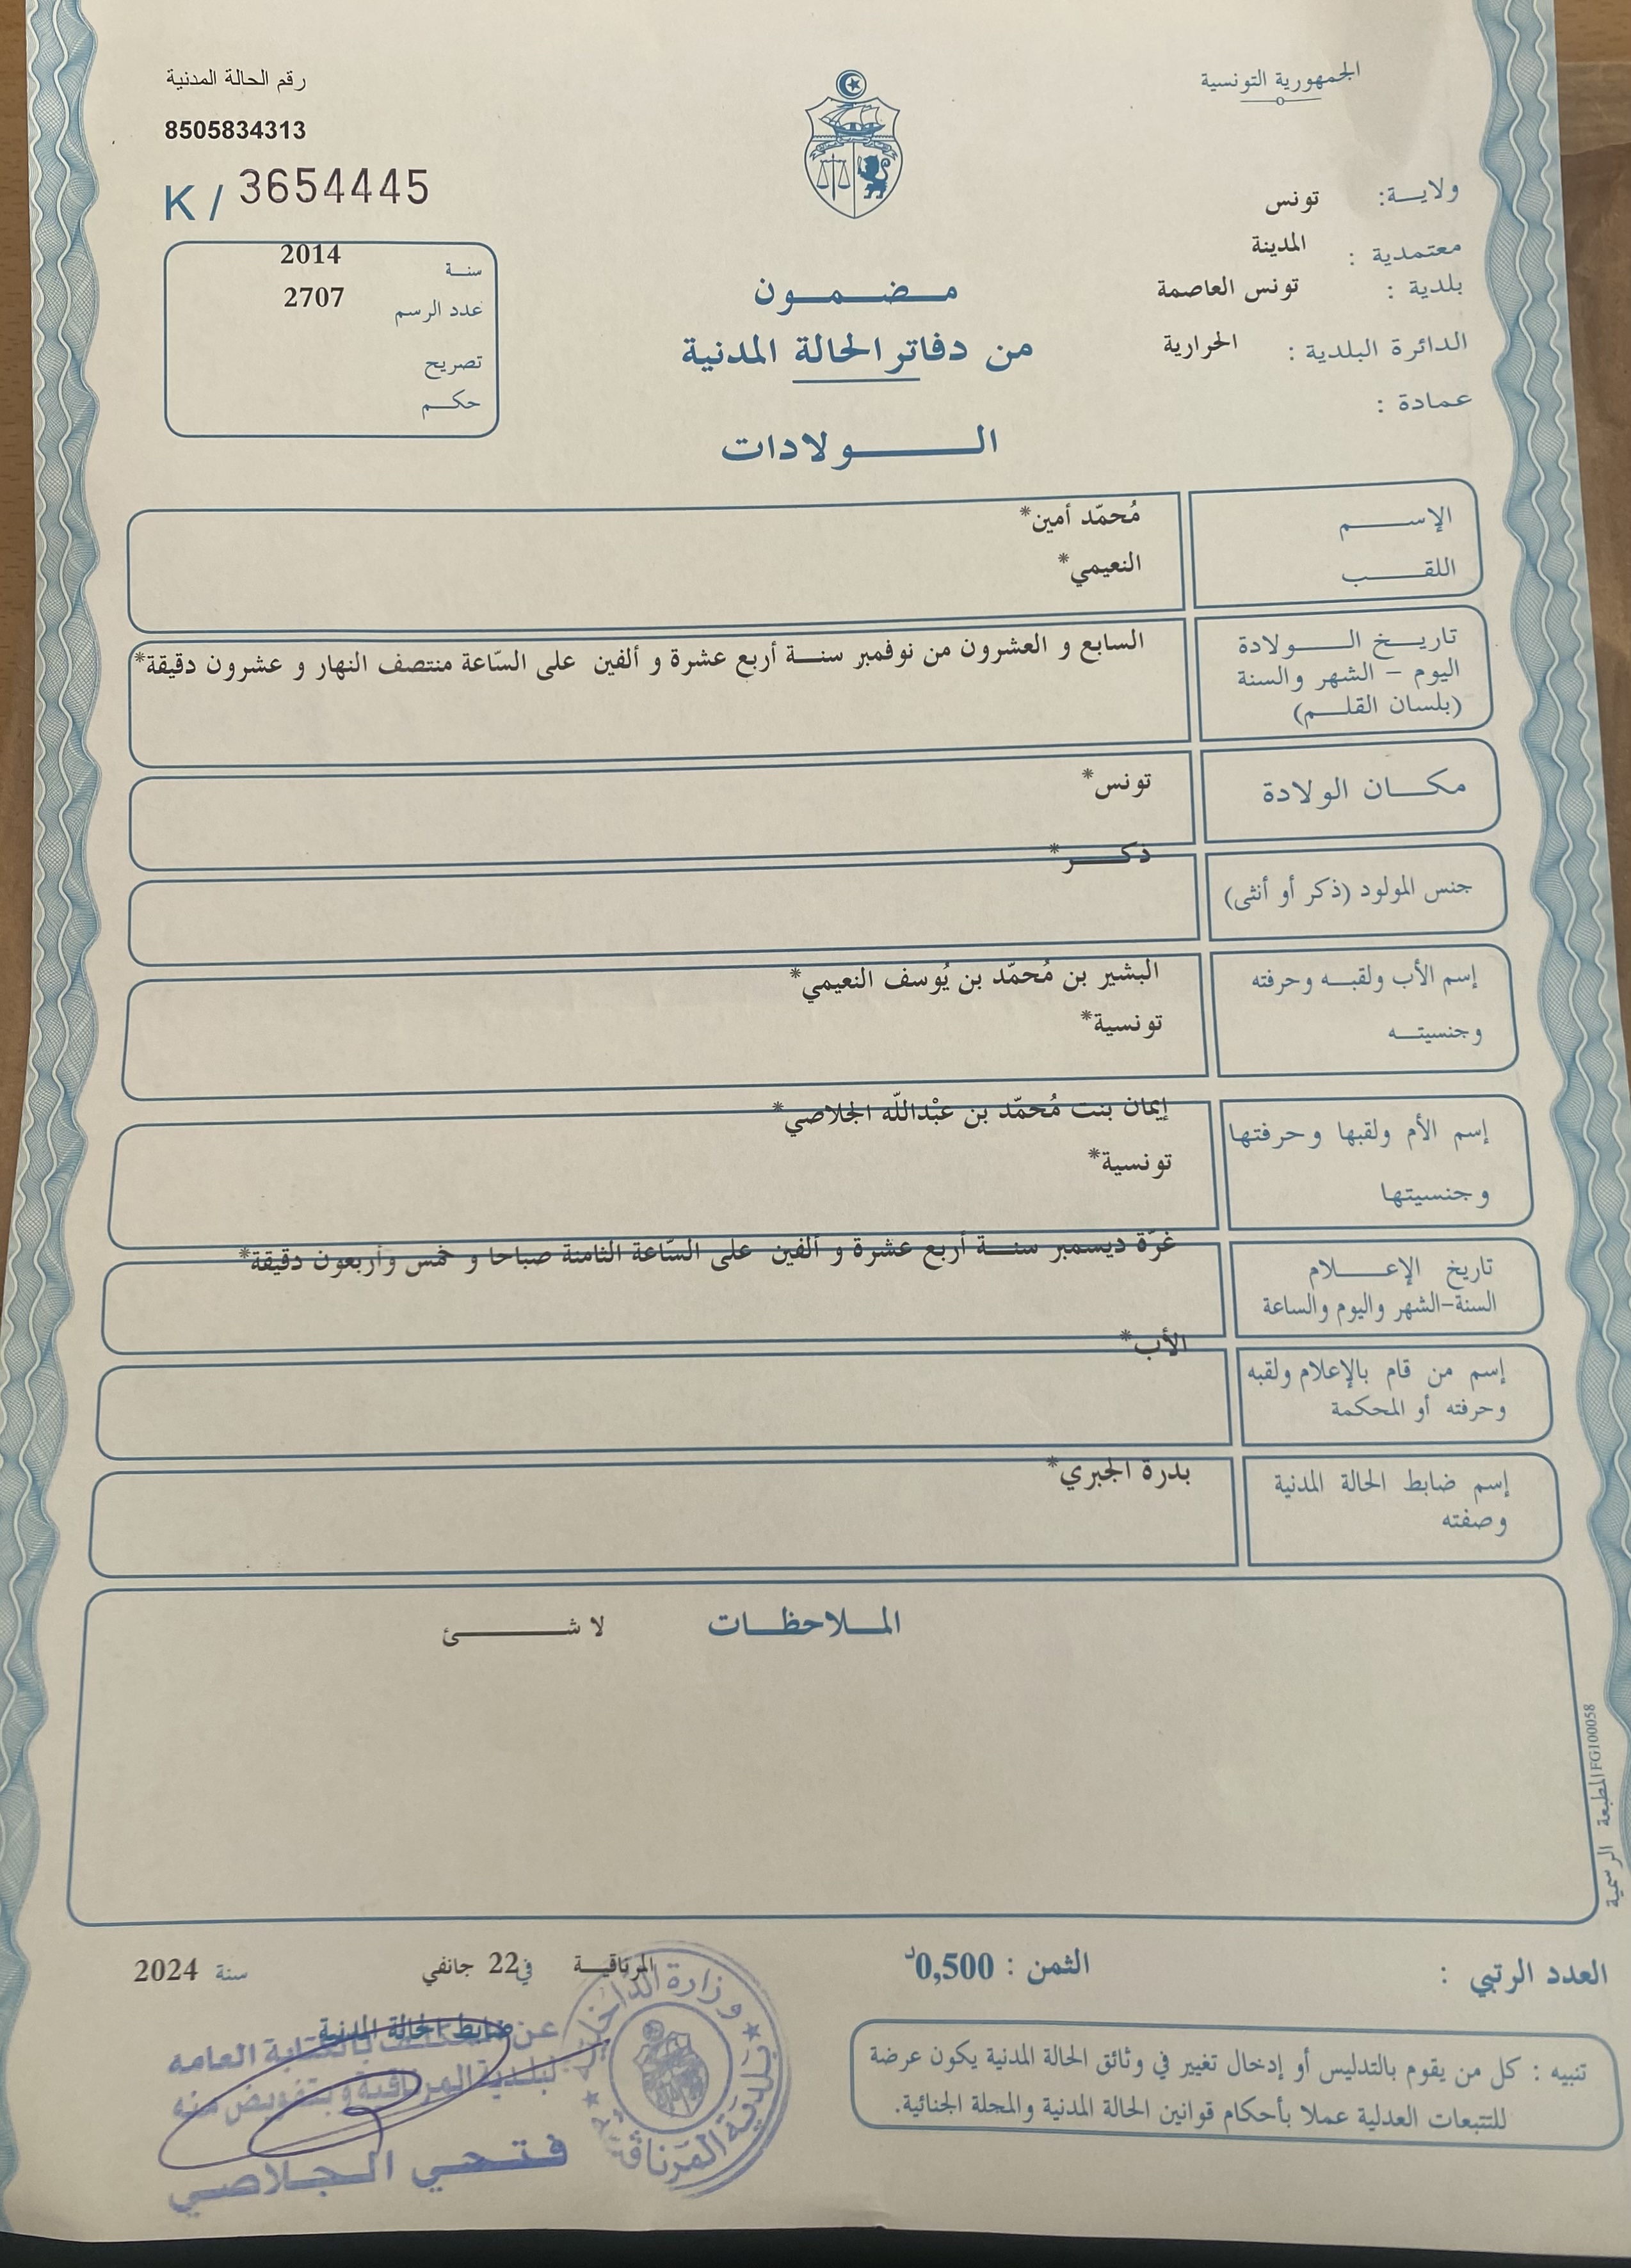 الجمهورية التونسية
ولايـــة: تونس
معتمدية : المدينة
بلدية : تونس العاصمة
الدائرة البلدية : الحرارية
عمادة :
رقم الحالة المدنية
8505834313
K / 3654445
سنـة 2014
عدد الرسم 2707
تصريح
حكــم
مــضــمــون
من دفاتر الحالة المدنية
الــــولادات
الإســــم مُحمّد أمين*
اللقـــب النعيمي*
تاريــخ الـــولادة السابع و العشرون من نوفمبر سنــة أربع عشرة و ألفين على السّاعة منتصف النهار و عشرون دقيقة*
اليوم – الشهر والسنة
(بلسان القلــم)
مكـــان الولادة تونس*
جنس المولود (ذكر أو أنثى) ذكـــر*
إسم الأب ولقبــه وحرفته البشير بن مُحمّد بن يُوسف النعيمي*
وجنسيتــه تونسية*
إسم الأم ولقبها وحرفتها إيمان بنت مُحمّد بن عبْدالله الجلاصي*
وجنسيتها تونسية*
تاريخ الإعـــلام غرّة ديسمبر سنــة أربع عشرة و ألفين على السّاعة الثامنة صباحا و خمس وأربعون دقيقة*
السنة-الشهر واليوم والساعة
إسم من قام بالإعلام ولقبه الأب*
وحرفته أو المحكمة
إسم ضابط الحالة المدنية بدرة الجبري*
وصفته
المــلاحظــات لا شــــئ
المطبعة الرسمية FG100058
العدد الرتبي :
الثمن : 0,500د
المرناقيــة في 22 جانفي سنة 2024
ضابط الحالة المدنية
عن المكلف بالكتابة العامة
لبلدية المرناقية وبتفويض منه
فتحي الجلاصي
وزارة الداخلية
بلدية المرناقية
تنبيه : كل من يقوم بالتدليس أو إدخال تغيير في وثائق الحالة المدنية يكون عرضة
للتتبعات العدلية عملا بأحكام قوانين الحالة المدنية والمجلة الجنائية.